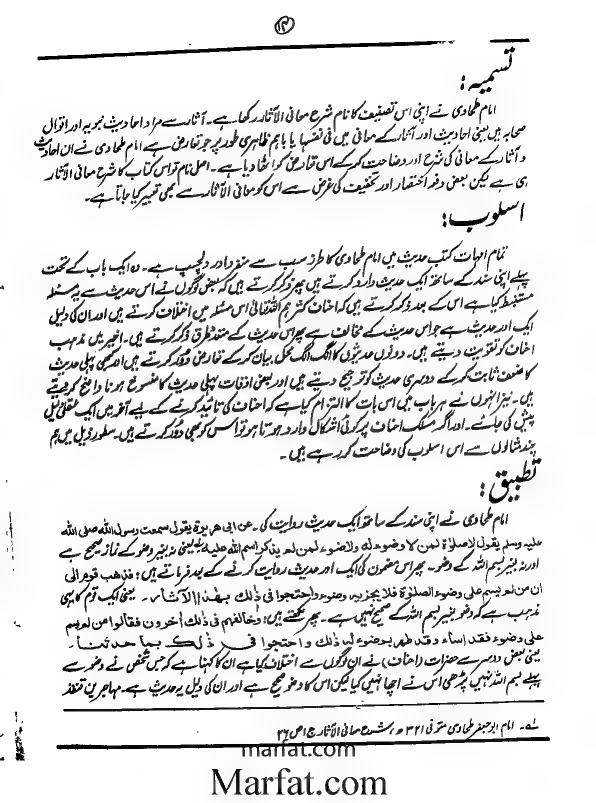 ۱۲
تسمیہ:
امام طحاوی نے اپنی اس تصنیف کا نام شرح معانی الآثار رکھا ہے۔ آثار سے مراد احادیث نبویہ اور اقوال
صحابہ ہیں یعنی احادیث اور آثار کے معانی میں فی نفسہا یا باہم ظاہری طور پر جو تعارض ہے امام طحاوی نے ان احادیث
و آثار کے معانی کی شرح اور وضاحت کر کے اس تعارض کو اٹھا دیا ہے۔ اصل نام تو اس کتاب کا شرح معانی الآثار
ہی ہے لیکن بعض دفعہ اختصار اور تخفیف کی غرض سے اس کو معانی الآثار سے بھی تعبیر کیا جاتا ہے۔
اسلوب:
تمام امہات کتب حدیث میں امام طحاوی کا طرز سب سے منفرد اور دلچسپ ہے۔ وہ ایک باب کے تحت
پہلے اپنی سند کے ساتھ ایک حدیث وارد کرتے ہیں پھر ذکر کرتے ہیں کہ بعض لوگوں نے اس حدیث سے یہ مسئلہ
مستنبط کیا ہے اس کے بعد ذکر کرتے ہیں کہ احناف کثرہم اللہ تعالیٰ اس مسئلہ میں اختلاف کرتے ہیں اور ان کی دلیل
ایک اور حدیث ہے جو اس حدیث کے مخالف ہے پھر اس حدیث کے متعدد طرق ذکر کرتے ہیں۔ اخیر میں مذہب
احناف کو تقویت دیتے ہیں۔ دونوں حدیثوں کا الگ الگ محل بیان کر کے تعارض دور کرتے ہیں اور کبھی پہلی حدیث
کا ضعف ثابت کر کے دوسری حدیث کو ترجیح دیتے ہیں اور بعض اوقات پہلی حدیث کا منسوخ ہونا واضح کر دیتے
ہیں۔ نیز انہوں نے ہر باب میں اس بات کا التزام کیا ہے کہ احناف کی تائید کرنے کے لیے آخر میں ایک عقلی دلیل
پیش کی جائے۔ اور اگر مسلک احناف پر کوئی اشکال وارد ہوتا ہو تو اس کو بھی دور کرتے ہیں۔ سطور ذیل میں ہم
چند مثالوں سے اس اسلوب کی وضاحت کر رہے ہیں۔
تطبیق:
امام طحاوی نے اپنی سند کے ساتھ ایک حدیث روایت کی۔ عن ابی ھریرۃ یقول سمعت رسول اللہ صلی اللہ
علیہ وسلم یقول لا صلوۃ لمن لا وضوء لہ ولا وضوء لمن لم یذکر اسم اللہ علیہ یعنی نہ بغیر وضو کے نماز صحیح ہے
اور نہ بغیر بسم اللہ کے وضو۔ پھر اس مضمون کی ایک اور حدیث روایت کرنے کے بعد فرماتے ہیں: فذھب قوم الی
ان من لم یسم علی وضوء الصلوۃ فلا یجزیہ وضوءہ واحتجوا فی ذلک بھذا الآثار۔ یعنی ایک قوم کا یہی
مذہب ہے کہ وضو بغیر بسم اللہ کے صحیح نہیں ہے۔ پھر لکھتے ہیں: وخالفھم فی ذلک آخرون فقالوا من لم یسم
علی وضوءہ فقد اساء وقد طھر بوضوءہ ذلک واحتجوا فی ذلک بما حدثنا۔
یعنی بعض دوسرے حضرات (احناف) نے ان لوگوں سے اختلاف کیا ہے ان کا کہنا ہے کہ جس شخص نے وضو سے
پہلے بسم اللہ نہیں پڑھی اس نے اچھا نہیں کیا لیکن اس کا وضو صحیح ہے اور ان کی دلیل یہ حدیث ہے۔ مہاجر بن قنفذ
۱۔ امام ابو جعفر طحاوی متوفی ۳۲۱ھ، شرح معانی الآثار ج ا ص ۲۶
marfat.com
Marfat.com